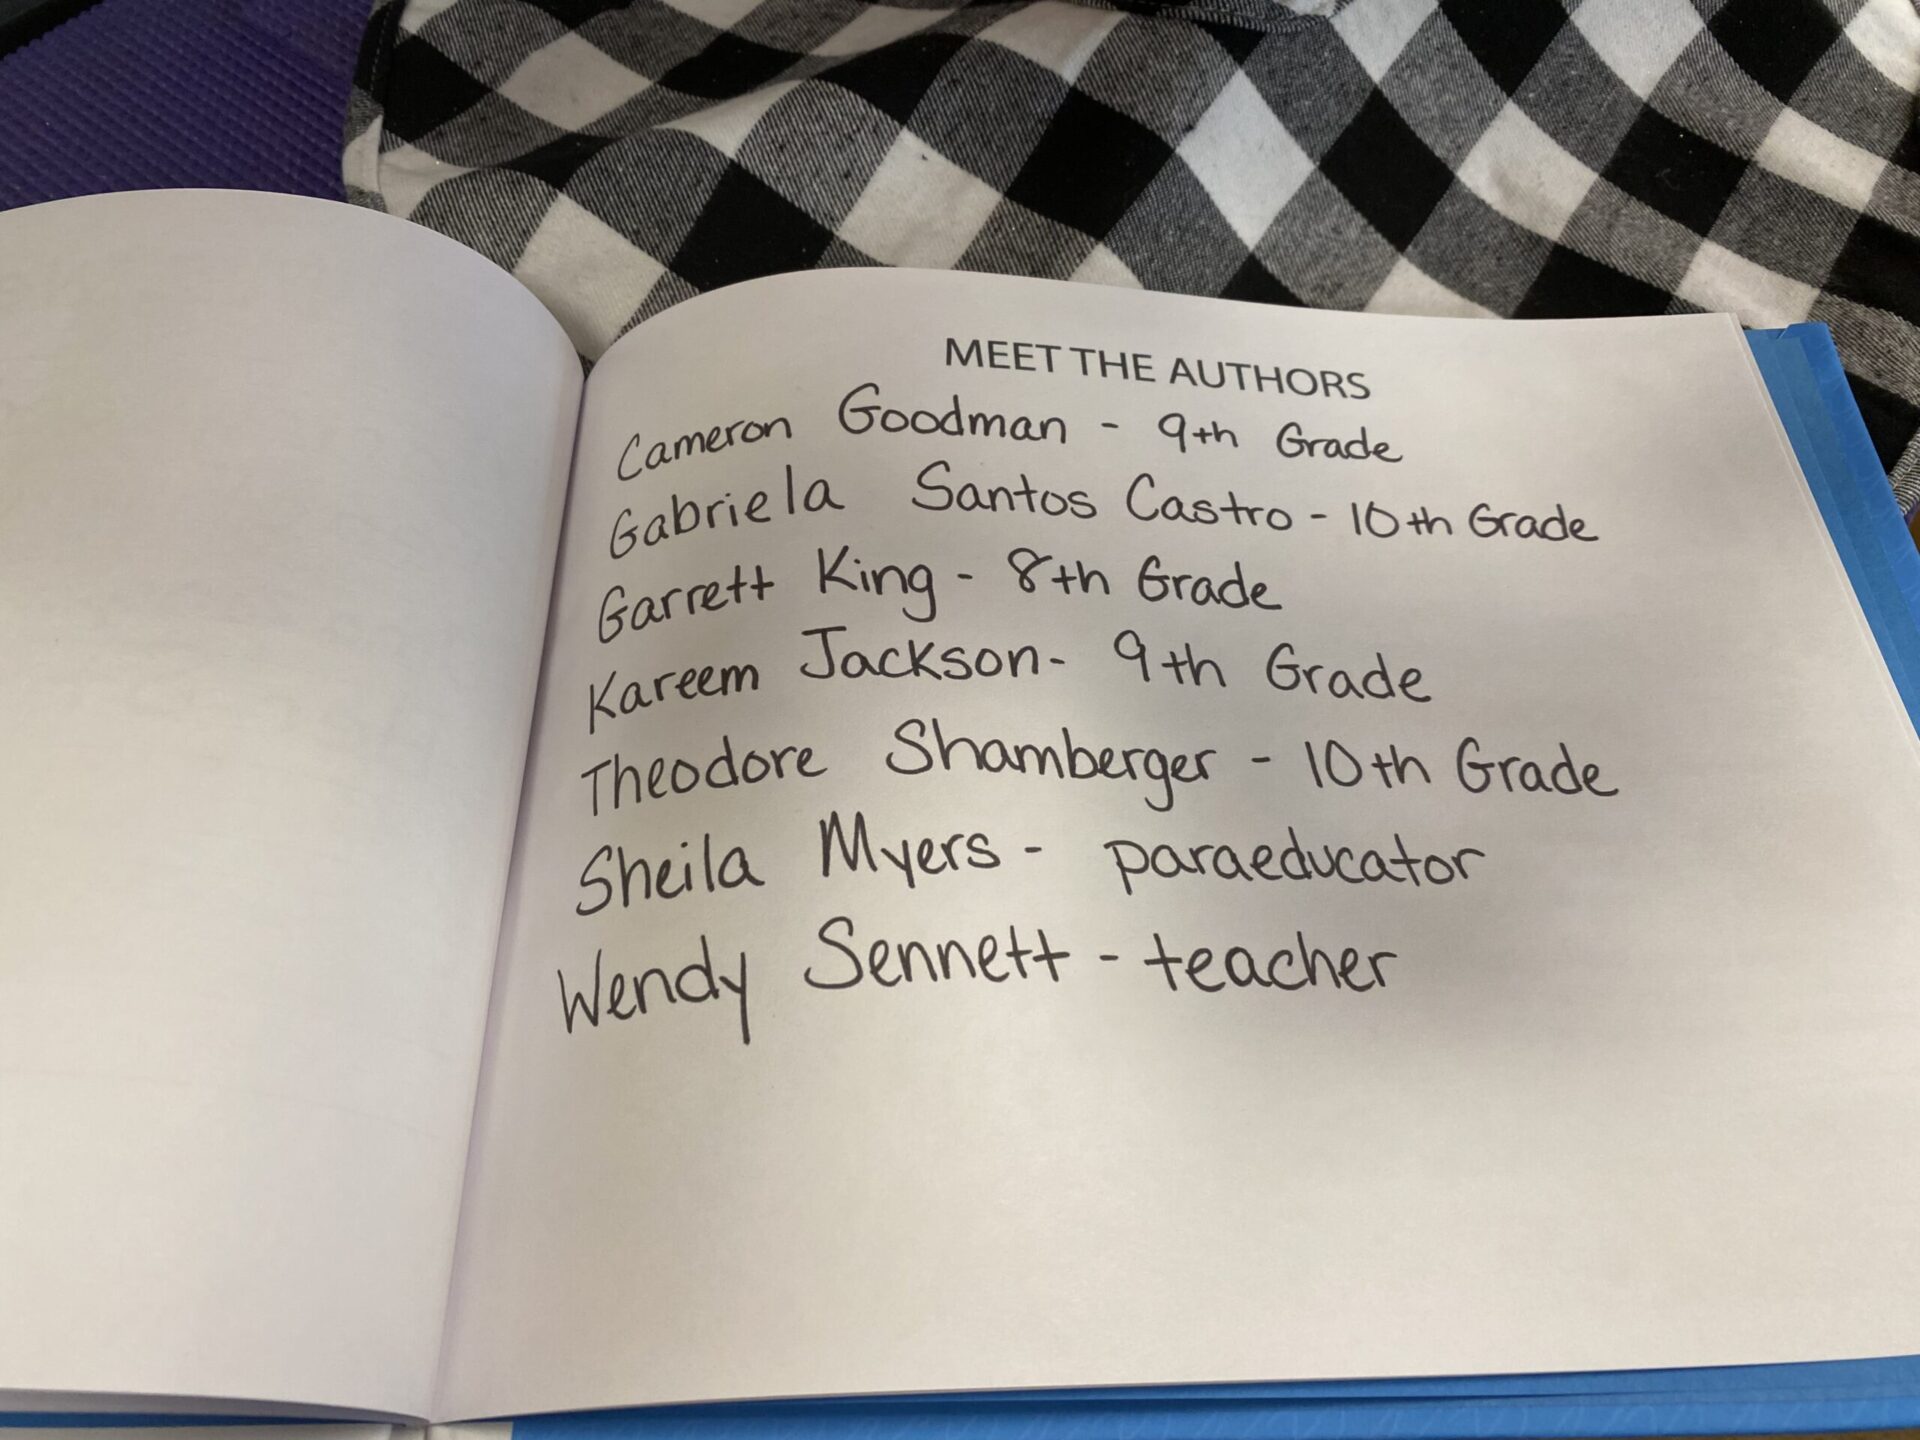 MEET THE AUTHORS
Cameron Goodman - 9th Grade
Gabriela Santos Castro - 10th Grade
Garrett King - 8th Grade
Kareem Jackson- 9th Grade
Theodore Shamberger - 10th Grade
Sheila Myers - paraeducator
Wendy Sennett - teacher